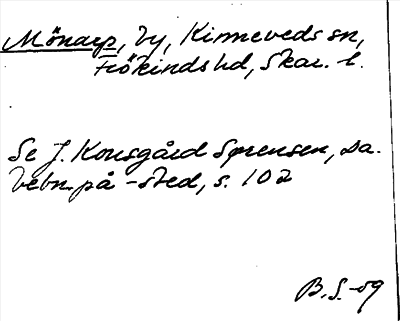 Mönarp, by, Kinneveds sn,
Frökinds hd, Skar. l.
Se J. Kousgård Sørensen, Da.
bebn. på -sted, s. 102
B. S-g